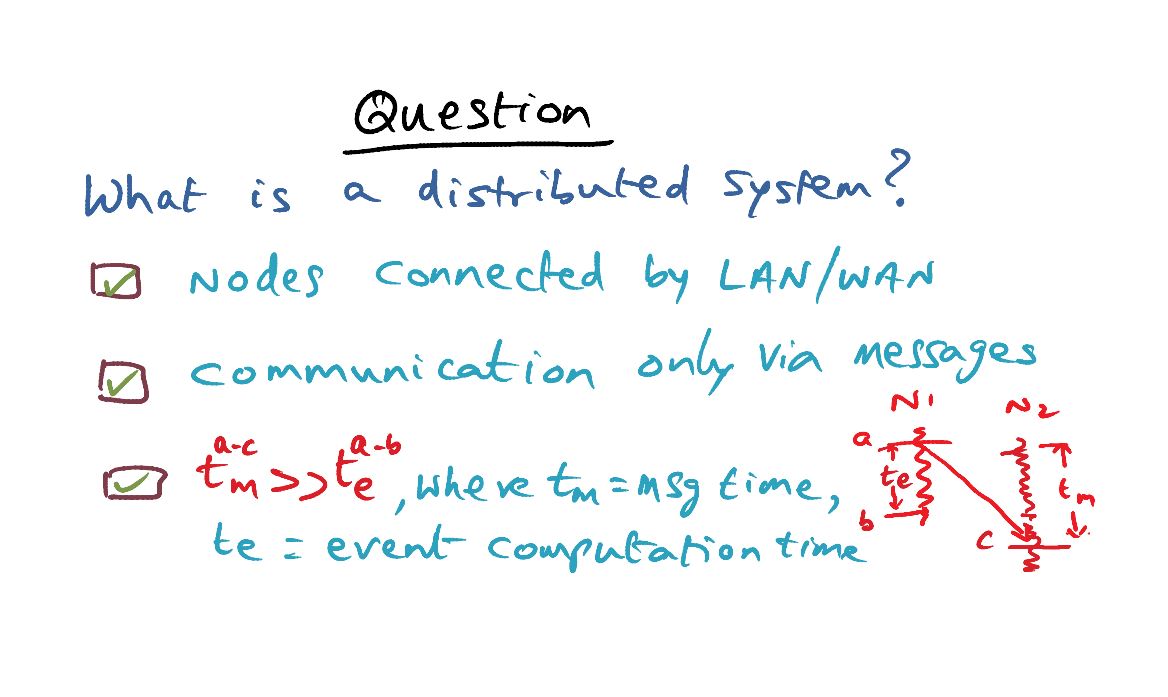 Question
What is a distributed system?
Nodes connected by LAN/WAN
communication only via messages
N1 N2
a-c a-b
tm >> te, where tm = msg time,
te = event computation time
a
te
b
c
tm